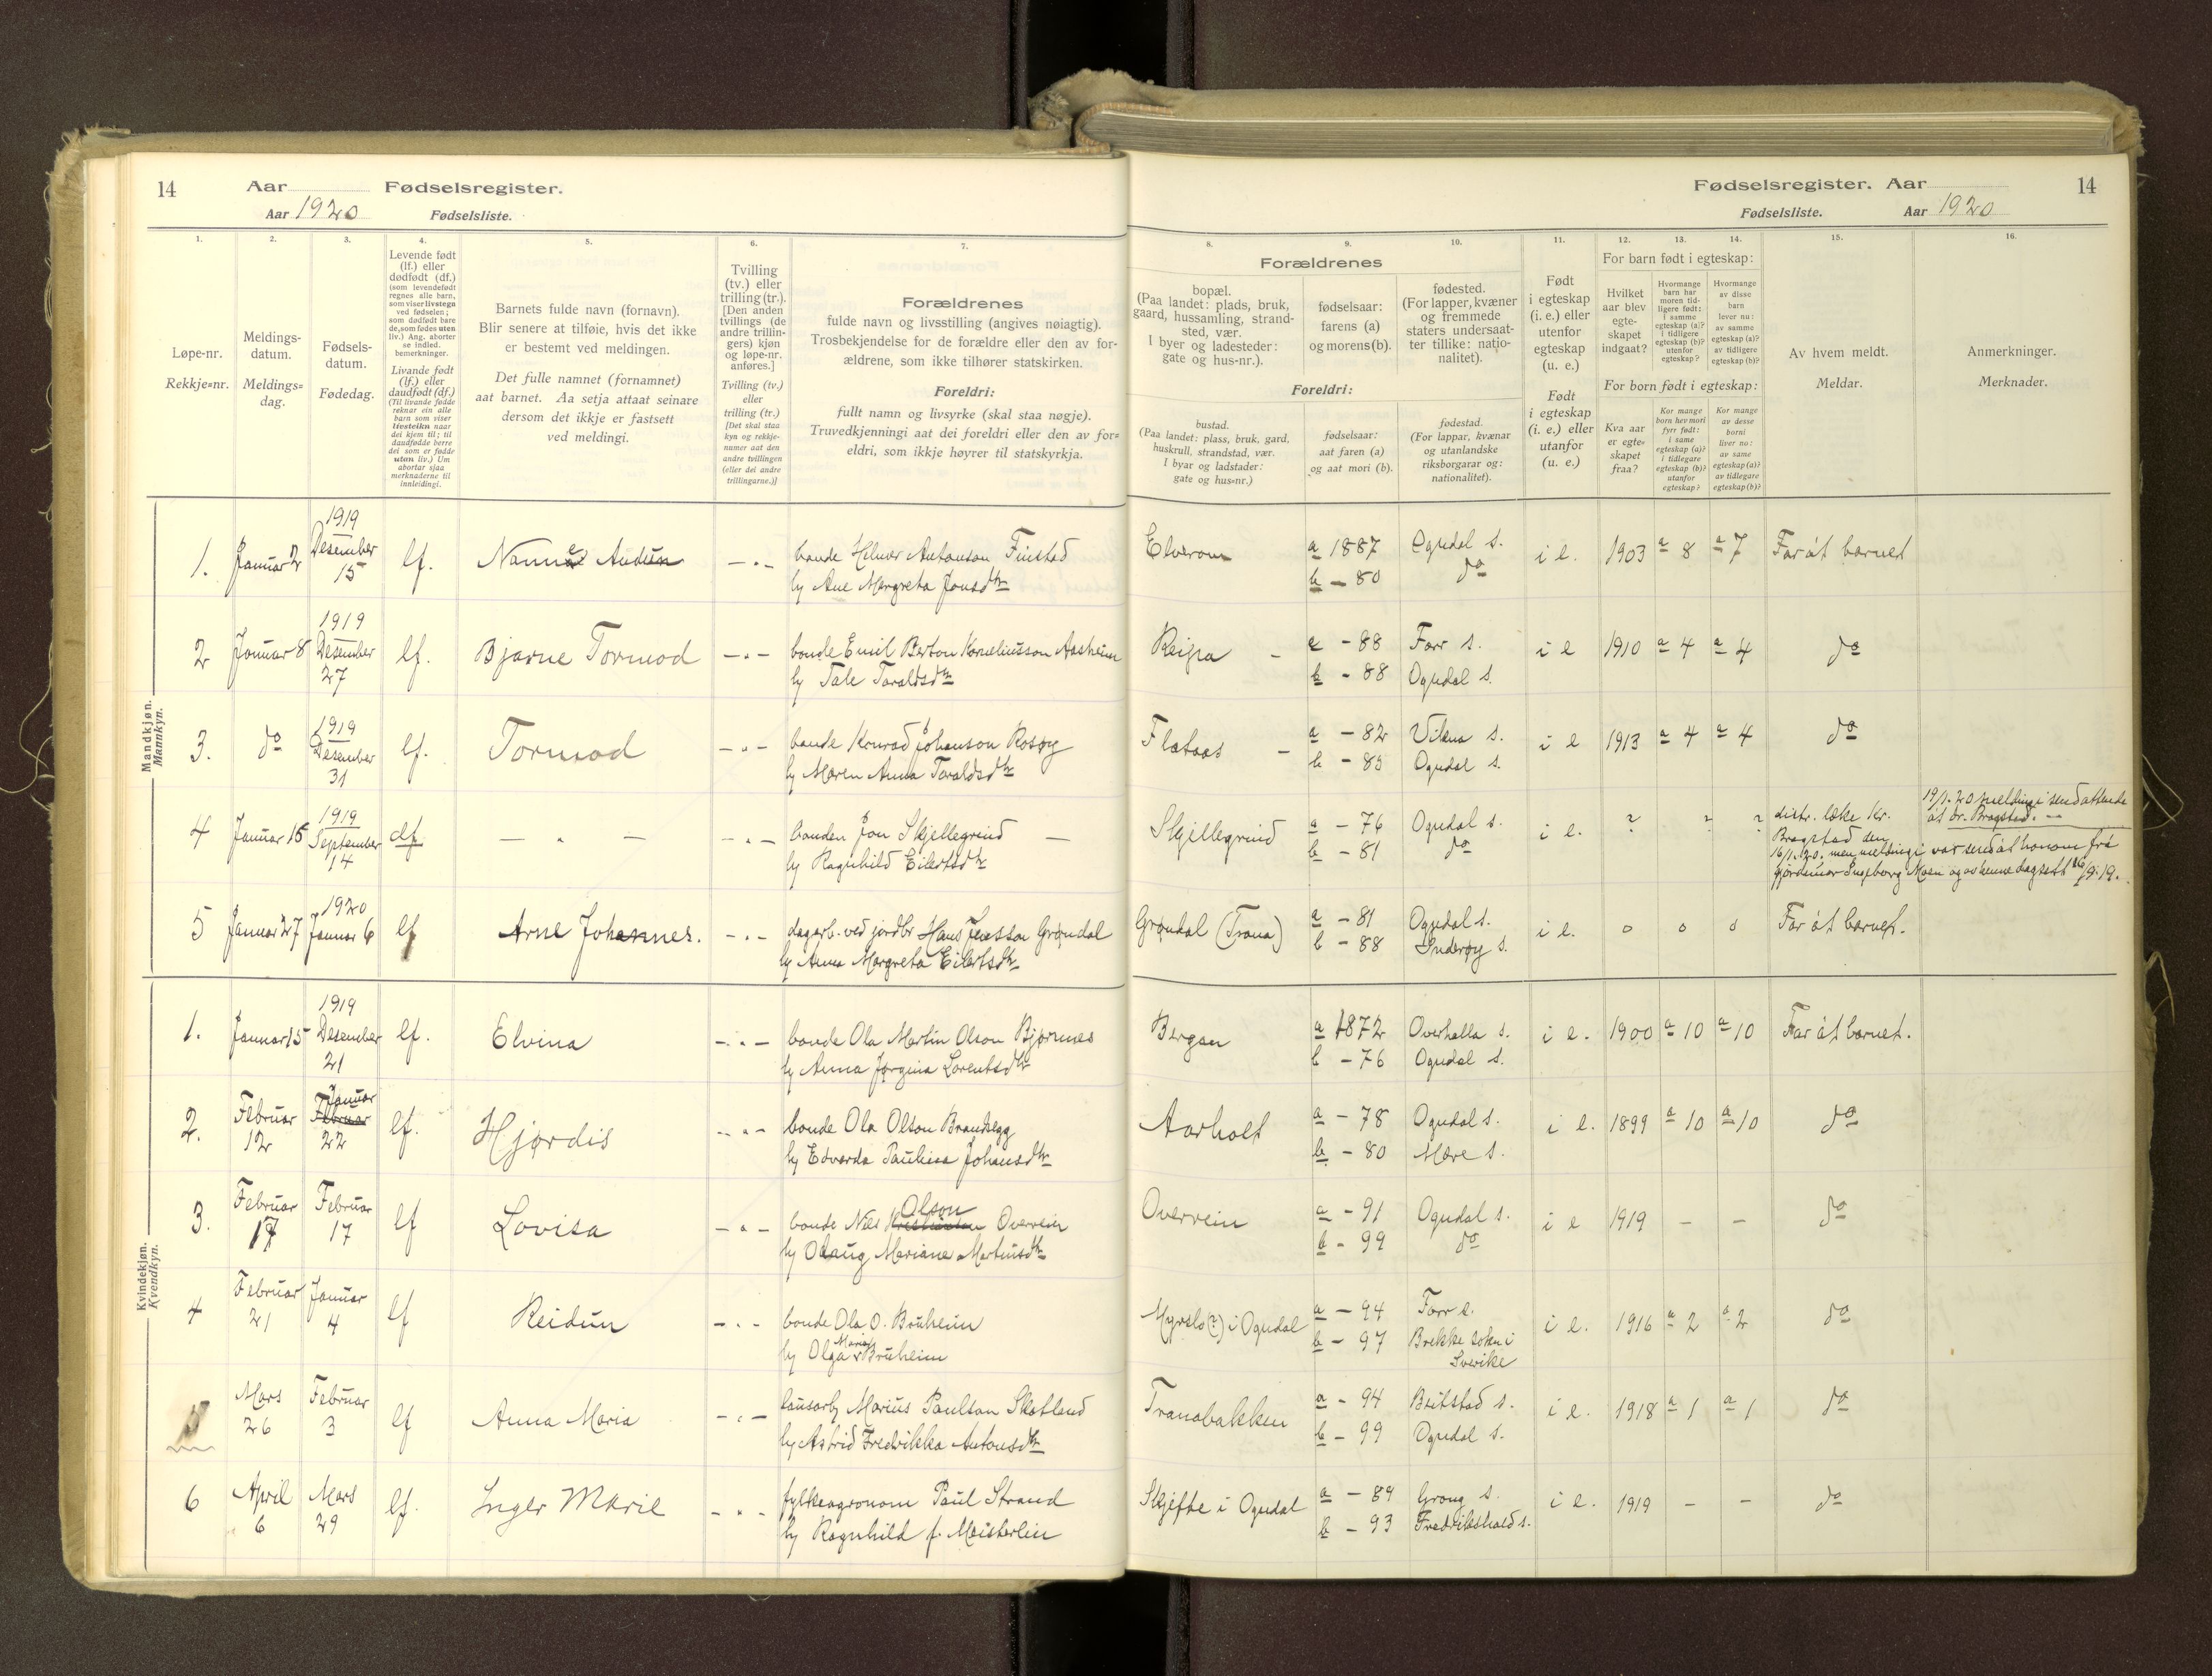 14 Aar Fødselsregister.
Aar 1920 Fødselsliste.
Fødselsregister. Aar 14
Fødselsliste. Aar 1920
1. 2. 3. 4. 5. 6. 7.
Løpe-nr.
Rekkje=nr.
Meldings-
datum.
Meldings=
dag.
Fødsels-
datum.
Fødedag.
Levende født
(lf.) eller
dødfødt (df.)
(som levendefødt
regnes alle barn,
som viser livstegn
ved fødselen;
som dødfødt bare
de, som fødes uten
liv.) Ang. aborter
se indled.
bemerkninger.
Livande født
(lf.) eller
daudfødt (df.)
(Til livande fødde
reknar ein alle
barn som viser
livsteikn naar
dei kjem til; til
daudfødde berre
dei som er fødde
utan liv.) Um
abortar sjaa
merknaderne til
innleidingi.
Barnets fulde navn (fornavn).
Blir senere at tilføie, hvis det ikke
er bestemt ved meldingen.
Det fulle namnet (fornamnet)
aat barnet. Aa setja attaat seinare
dersom det ikkje er fastsett
ved meldingi.
Tvilling
(tv.) eller
trilling (tr.).
[Den anden
tvillings (de
andre trillin-
gers) kjøn
og løpe-nr.
anføres.]
Tvilling (tv.)
eller
trilling (tr.)
[Det skal staa
kyn og rekkje-
numer aat den
andre tvillingen
(eller dei andre
trillingarne.)]
Forældrenes
fulde navn og livsstilling (angives nøiagtig).
Trosbekjendelse for de forældre eller den av for-
ældrene, som ikke tilhører statskirken.
Foreldri:
fullt namn og livsyrke (skal staa nøgje).
Truvedkjenningi aat dei foreldri eller den av for=
eldri, som ikkje høyrer til statskyrkja.
8. 9. 10. 11. 12. 13. 14. 15. 16.
Forældrenes
bopæl.
(Paa landet: plads, bruk,
gaard, hussamling, strand-
sted, vær.
I byer og ladesteder:
gate og hus-nr.).
fødselsaar:
farens (a)
og morens (b).
fødested.
(For lapper, kvæner
og fremmede
staters undersaat-
ter tillike: natio-
nalitet).
Foreldri:
bustad.
(Paa landet: plass, bruk, gard,
huskrull, strandstad, vær.
I byar og ladstader:
gate og hus=nr.)
fødselsaar:
aat faren (a)
og aat mori (b).
fødestad.
(For lappar, kvænar
og utanlandske
riksborgarar og:
nationalitet).
Født
i egteskap
(i. e.) eller
utenfor
egteskap
(u. e.)
Født
i egteskap
(i. e.) eller
utanfor
(u. e.)
For barn født i egteskap:
Hvilket
aar blev
egte-
skapet
indgaat?
Hvormange
barn har
moren tid-
ligere født:
i samme
egteskap (a)?
i tidligere
egteskap (b)?
utenfor
egteskap?
Hvormange
av disse
barn
lever nu:
av samme
egteskap (a)?
av tidligere
egteskap (b)?
For born født i egteskap:
Kva aar
er egte=
skapet
fraa?
Kor mange
born hev mori
fyrr født:
i same
egteskap (a)?
i tidlegare
egteskap (b)?
utanfor
egteskap?
Kor mange
av desse
borni
liver no:
av same
egteskap (a)?
av tidlegare
egteskap (b)?
Av hvem meldt.
Meldar.
Anmerkninger.
Merknader.
Mandkjøn.
Mannkyn.
1919
1. Januar 2 Desember 15 lf. Audun — " — bonde Helmer Antonson Finstad
hy Ane Margreta Jonsdtr
Elverom a 1887 Ogndal s. i e. 1903 a 8 a 7 Far åt barnet
b — 80 do
1919
2 Januar 8 Desember 27 lf. Bjarne Tormod — " — bonde Emil Berton Korneliusson Aasheim
hy Tale Taraldsdtr
Reipa - a - 88 Foss s. i e 1910 a 4 a 4 do
b - 88 Ogndal s.
1919
3. do Desember 31 lf. Tormod — " — bonde Konrad Johanson Rosøy
hy Maren Anna Taraldsdtr
Flataas - a - 82 Vikna s. i e 1913 a 4 a 4 do
b - 83 Ogndal s.
1919
4 Januar 15 September 14 df — " — — " — bonden Jon Skjellegrind —
hy Ragnhild Eilertsdtr
Skjellegrind a - 76 Ogndal s. i e. ? ? ? distr. læke Kr.
b - 81 do
Bragstad den
16/1. 20. men meldingi var send åt honom frå
gjordmor Ingeborg Moen og av henne dagsett 16/9. 19.
19/1. 20 meldingi send attende
åt dr. Bragstad. —
1920
5 Januar 27 Januar 6 lf Arne Johannes. — " — dagarb. ved jordbr Hans Jensson Grøndal
hy Anna Margreta Eilertsdtr
Grøndal (Trana) a - 81 Ogndal s. i e. 0 0 0 Far åt barnet.
b - 88 Inderøy s.
Kvindekjøn.
Kvendkyn.
1919
1. Januar 15 Desember 21 lf. Elvina — " — bonde Ola Martin Olson Bjørnnes
hy Anna Jørgina Lorentsdtr
Bergan a 1872 Overhalla s. i e. 1900 a 10 a 10 Far åt barnet.
b - 76 Ogndal s.
2. Februar 12 Januar Februar 22 lf. Hjørdis — " — bonde Ola Olson Brandhegg
hy Edvarda Paulina Johansdtr
Aarholt a - 78 Ogndal s. i e. 1899 a 10 a 10 do
b - 80 Mære s.
3. Februar 17 Februar 17 lf Lovisa — " — bonde Nils Olson Overrein
hy Olaug Mariane Martinsdtr
Overrein a - 91 Ogndal s. i e 1919 - - do
b - 99 do
4 Februar 21 Januar 4 lf Reidun — " — bonde Ola O. Bruheim
hy Olga Maria Bruheim
Myrslo (?) i Ogndal a - 94 i e. 1916 a 2 a 2 do
b - 97 Brekke sokn i
Sverike
5 Mars 26 Februar 3 lf Anna Maria — " — lausarb Marius Paulson Skotland
hy Astrid Fredrikka Antonsdtr
Tranabakken a - 94 Beitstad s. i e. 1918 a 1 a 1 do
b - 99 Ogndal s.
6 April 6 Mars 29 lf. Inger Marie — " — fylkesagronom Paul Strand
hy Ragnhild f. Meisterlin
Skjefte i Ogndal a - 89 Grong s. i e. 1919 - - do
b - 93 Fredrikshald s.